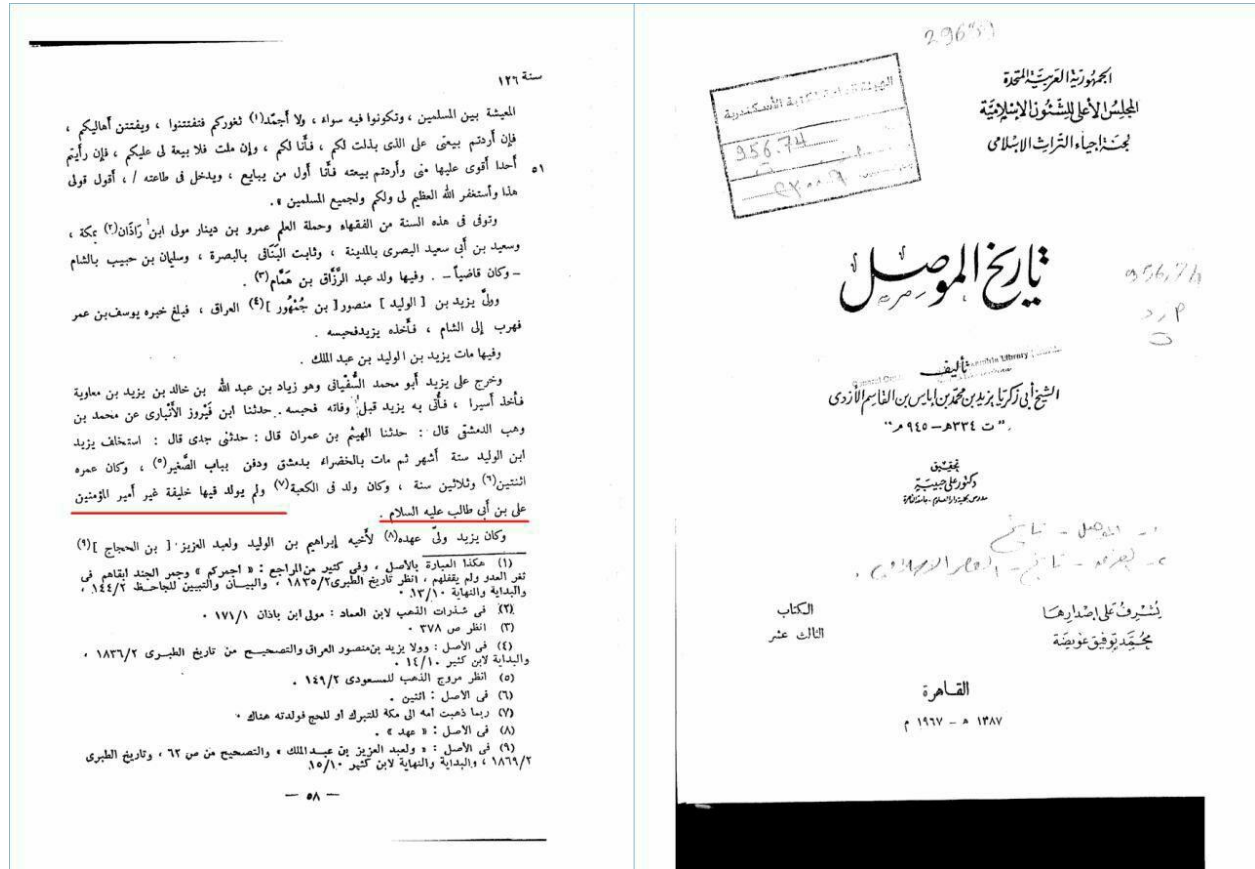 سنة ١٢٦
المعيشة بين المسلمين ، وتكونوا فيه سواء ، ولا أجمّد(١) ثغوركم فتفتتنوا ، ويفتتن أهاليكم ،
فإن أردتم بيعتى على الذى بذلت لكم ، فأنا لكم ، وإن ملت فلا بيعة لى عليكم ، فإن رأيتم
٥١ أحدا أقوى عليها منى وأردتم بيعته فأنا أول من يبايع ، ويدخل فى طاعته / ، أقول قولى
هذا وأستغفر الله العظيم لى ولكم ولجميع المسلمين » .
وتوفى فى هذه السنة من الفقهاء وحملة العلم عمرو بن دينار مولى ابن زَاذَان(٢) بمكة ،
وسعيد بن أبى سعيد البصرى بالمدينة ، وثابت البُنَانى بالبصرة ، وسليمان بن حبيب بالشام
– وكان قاضياً – . وفيها ولد عبد الرَّزَّاق بن هَمَّام(٣) .
وولَّى يزيد بن [ الوليد ] منصور [ بن جُمْهُور ](٤) العراق ، فبلغ خبره يوسف بن عمر
فهرب إلى الشام ، فأخذه يزيد فحبسه .
وفيها مات يزيد بن الوليد بن عبد الملك .
وخرج على يزيد أبو محمد السُّفْيانى وهو زياد بن عبد الله بن خالد بن يزيد بن معاوية
فأخذ أسيرا ، فأُتى به يزيد قبل وفاته فحبسه . حدثنا ابن فَيْروز الأنْبارى عن محمد بن
وهب الدمشقى قال : حدثنا الهيثم بن عمران قال : حدثنى جدى قال : استخلف يزيد
ابن الوليد ستة أشهر ثم مات بالخضراء بدمشق ودفن بباب الصَّغير(٥) ، وكان عمره
اثنتين(٦) وثلاثين سنة ، وكان ولد فى الكعبة(٧) ولم يولد فيها خليفة غير أمير المؤمنين
على بن أبى طالب عليه السلام .
وكان يزيد ولىّ عهده(٨) لأخيه إبراهيم بن الوليد ولعبد العزيز [ بن الحجاج ](٩)
(١) هكذا العبارة بالأصل ، وفى كثير من المراجع : « اجمركم » وجمر الجند ابقاهم فى
ثغر العدو ولم يقفلهم ، انظر تاريخ الطبرى ١٨٣٥/٢ ، والبيان والتبيين للجاحظ ١٤٤/٢ ،
والبداية والنهاية ١٣/١٠ .
(٢) فى شذرات الذهب لابن العماد : مولى ابن باذان ١٧١/١ .
(٣) انظر ص ٣٧٨ .
(٤) فى الأصل : وولا يزيد بن منصور العراق والتصحيح من تاريخ الطبرى ١٨٣٦/٢ ،
والبداية لابن كثير ١٤/١٠ .
(٥) انظر مروج الذهب للمسعودى ١٤٩/٢ .
(٦) فى الأصل : اثنين .
(٧) ربما ذهبت امه الى مكة للتبرك او للحج فولدته هناك .
(٨) فى الأصل : « عهد » .
(٩) فى الأصل : « ولعبد العزيز بن عبد الملك » والتصحيح من ص ٦٢ ، وتاريخ الطبرى
١٨٦٩/٢ ، والبداية والنهاية لابن كثير ١٥/١٠
— ٥٨ —
الجمهورية العربية المتحدة
المجلس الأعلى للشئون الإسلامية
لجنة إحياء التراث الإسلامى
956.74
تاريخ الموصل
956.74
تأليف
الشيخ أبى زكريا يزيد بن محمد بن إياس بن القاسم الأزدى
" ت ٣٣٤هـ – ٩٤٥ م "
تحقيق
دكتور على حبيبة
يشرف على إصدارها
محمد توفيق عويضة
الكتاب
الثالث عشر
القاهرة
١٣٨٧ هـ – ١٩٦٧ م